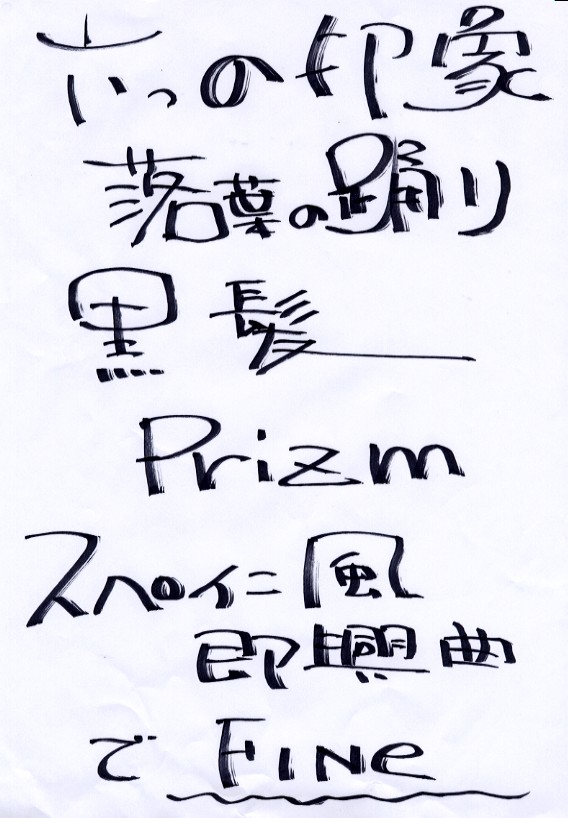 六つの印象
落葉の踊り
黒髪
Prizm
スペイン風
即興曲
で FINe